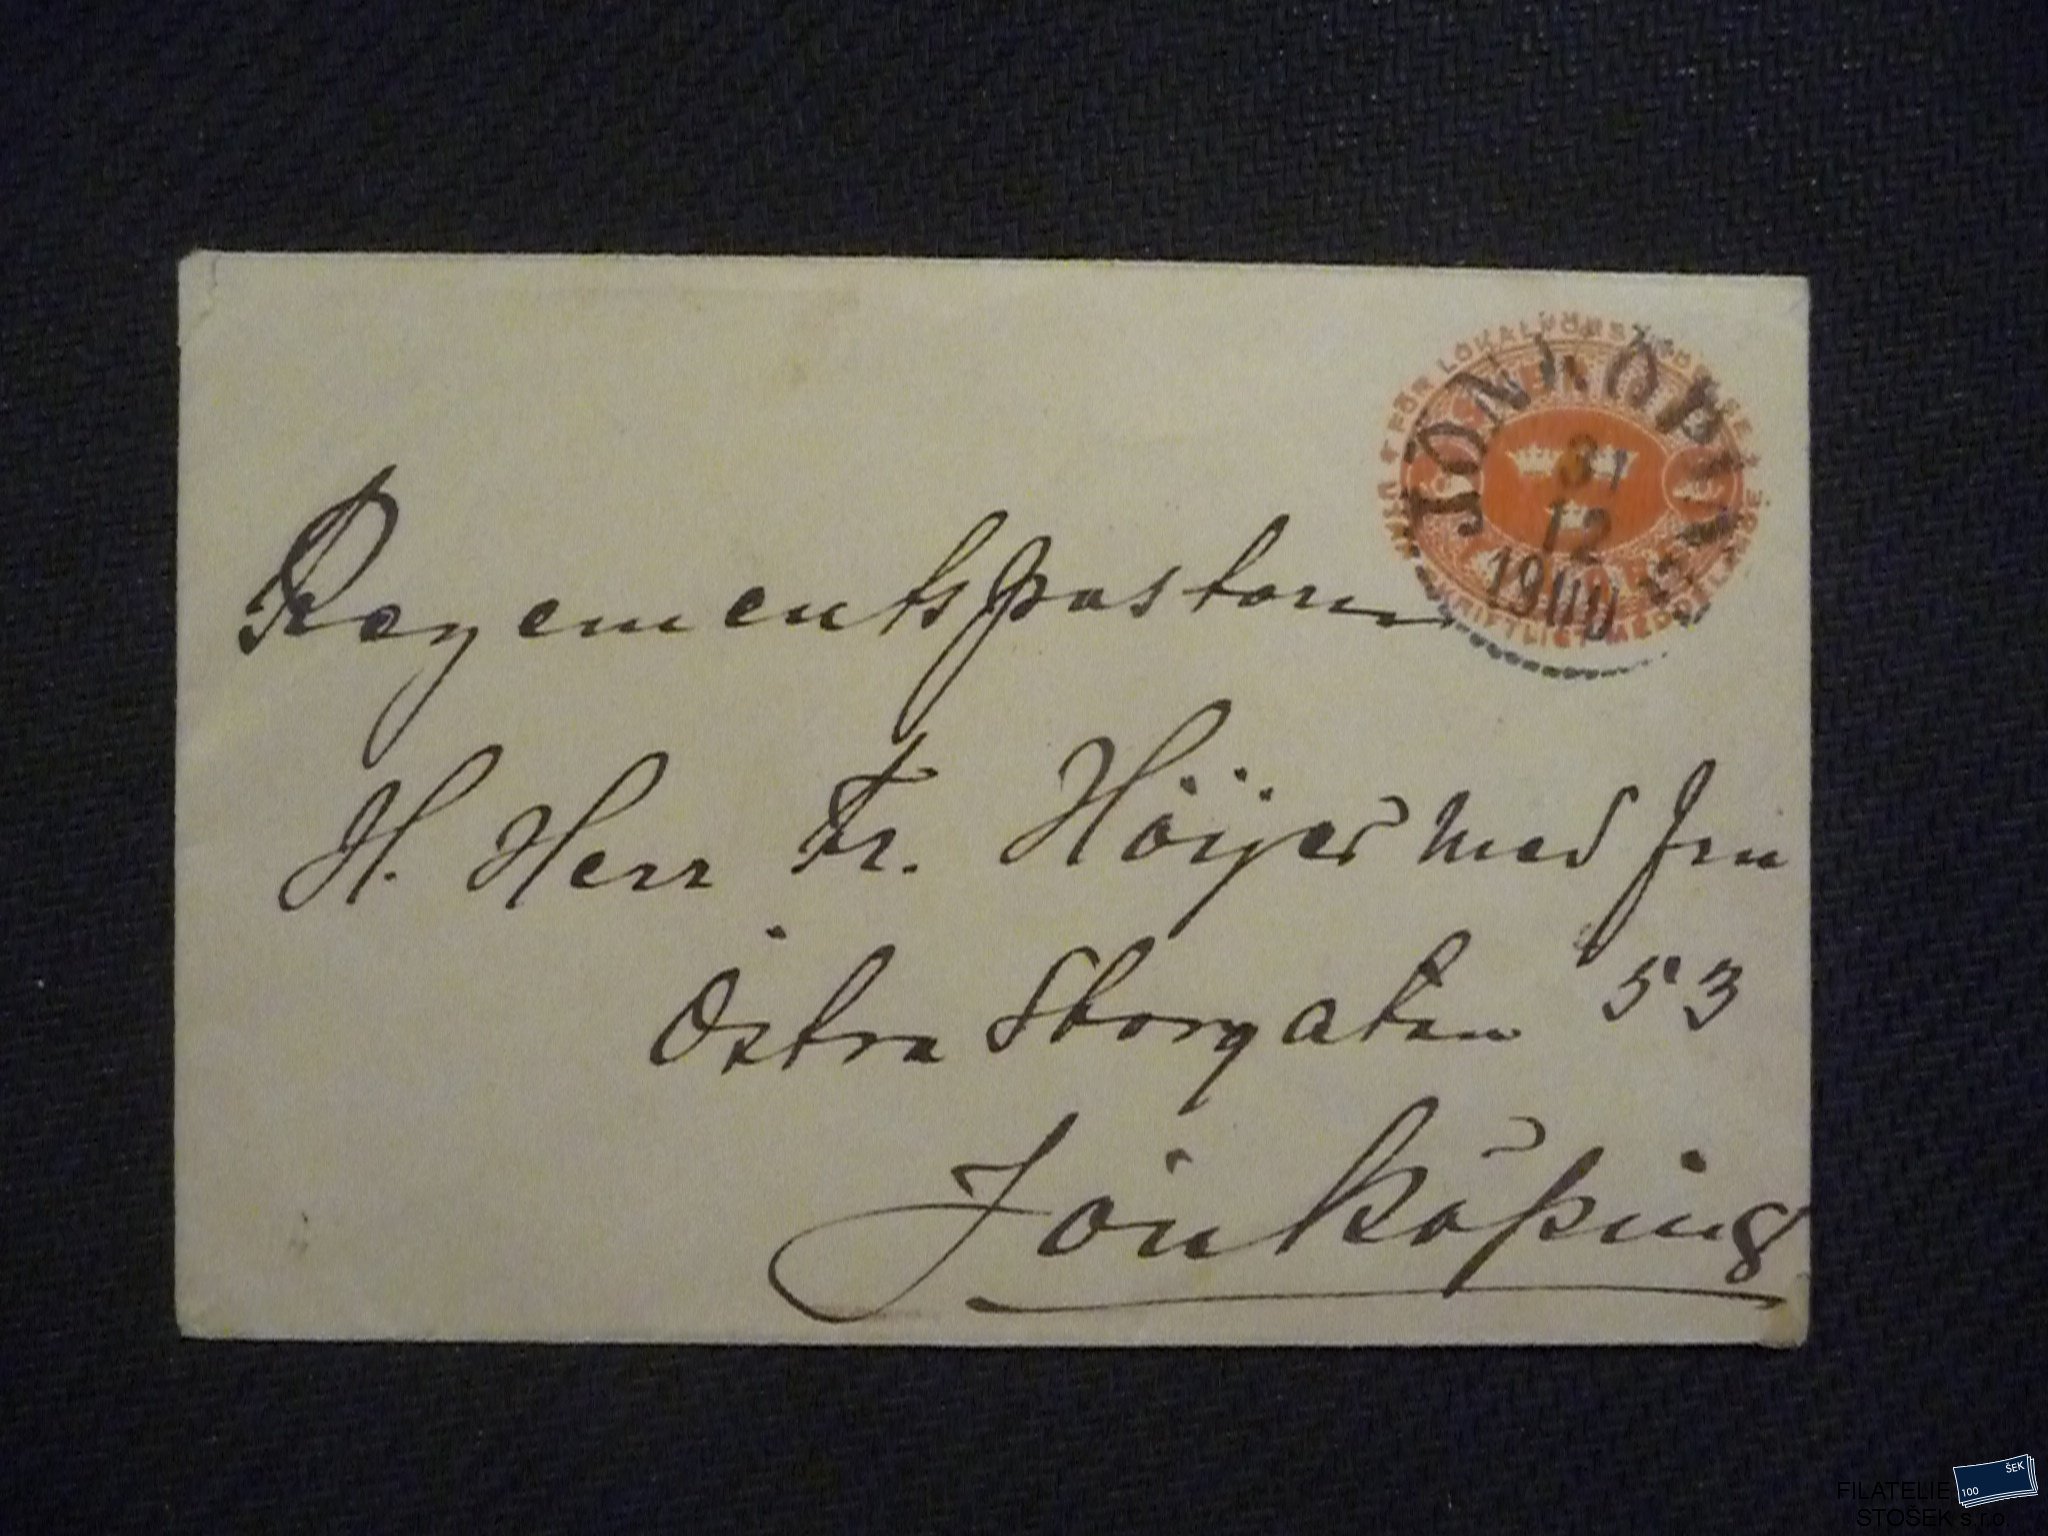 FÖR LOKALFÖRSÄNDELSE
SKRIFTLIGT MEDDELANDE
JÖNKÖPING
31
12
1900
Regementspastorn
H. Herr Fr. Höijer med Fru
Östra Storgatan 53
Jönköping
ŠEK
100
FILATELIE
STOŠEK s.r.o.